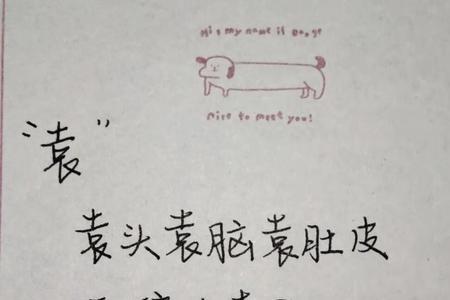 Hi, my name is Dooge
Nice to meet you!
“袁”
袁头袁脑袁肚皮